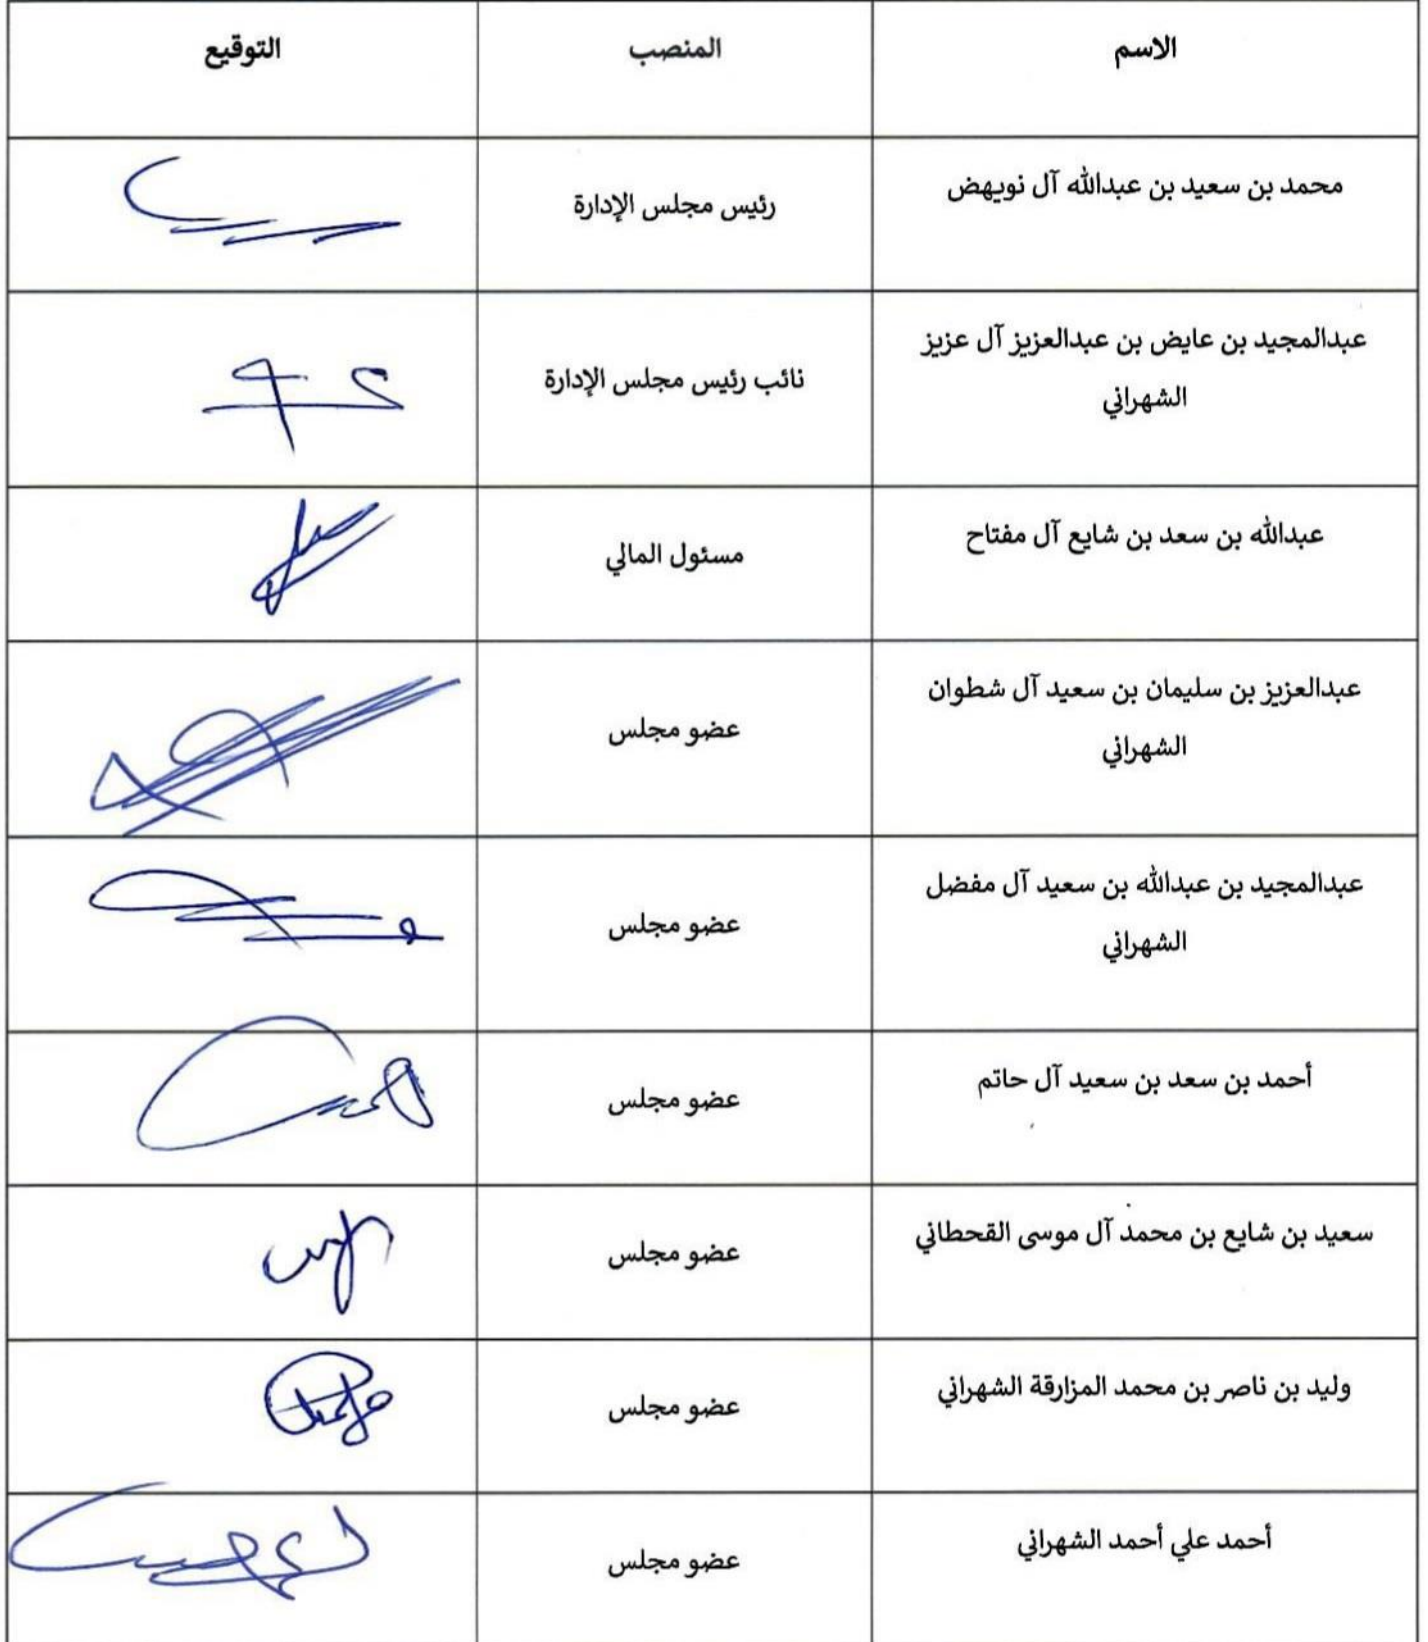 الاسم
المنصب
التوقيع
محمد بن سعيد بن عبدالله آل نويهض
رئيس مجلس الإدارة
عبدالمجيد بن عايض بن عبدالعزيز آل عزيز
الشهراني
نائب رئيس مجلس الإدارة
عبدالله بن سعد بن شايع آل مفتاح
مسئول المالي
عبدالعزيز بن سليمان بن سعيد آل شطوان
الشهراني
عضو مجلس
عبدالمجيد بن عبدالله بن سعيد آل مفضل
الشهراني
عضو مجلس
أحمد بن سعد بن سعيد آل حاتم
عضو مجلس
سعيد بن شايع بن محمد آل موسى القحطاني
عضو مجلس
وليد بن ناصر بن محمد المزارقة الشهراني
عضو مجلس
أحمد علي أحمد الشهراني
عضو مجلس